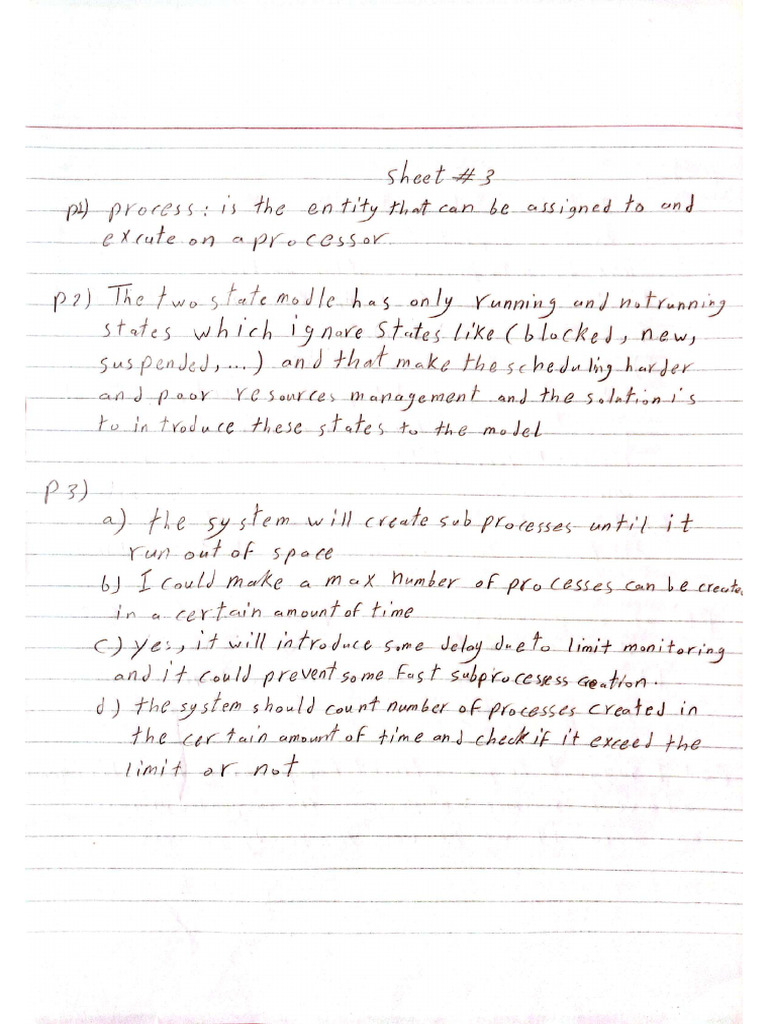 Sheet # 3
p1) process: is the entity that can be assigned to and
excute on a processor.
p2) The two state modle has only running and notrunning
states which ignore states like (blocked, new,
suspended, ...) and that make the scheduling harder
and poor resources management and the solution is
to introduce these states to the model
p3)
a) the system will create sub processes until it
run out of space
b) I could make a max number of processes can be create
in a certain amount of time
c) yes, it will introduce some delay due to limit monitoring
and it could prevent some fast subprocesess creation.
d) the system should count number of processes created in
the certain amount of time and check if it exceed the
limit or not